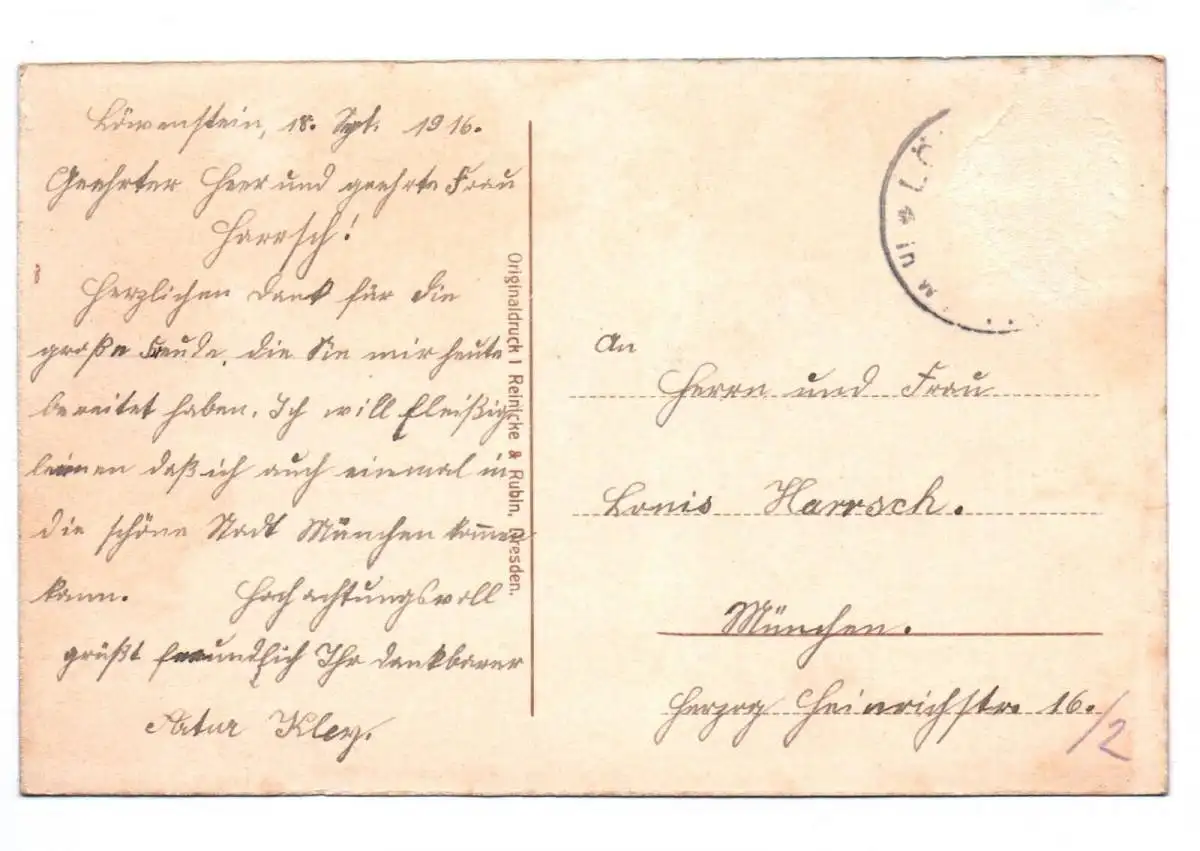 Löwenstein, 18. Spt. 1916.
Geehrter Herr und geehrte Frau
Harrsch!
Herzlichen Dank für die
große Freude, die Sie mir heute
bereitet haben. Ich will fleißig
lernen daß ich auch einmal in
die schöne Stadt München kommen
kann. Hochachtungsvoll
grüßt freundlich Ihr dankbarer
Kley.
Originaldruck | Reinicke & Rubin, Dresden.
LÖ
An
Herrn und Frau
Louis Harrsch.
München.
Herzog Heinrichstr. 16./2